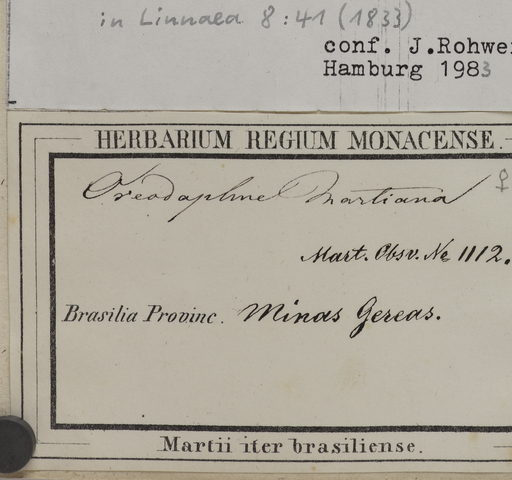 in Linnaea 8:41 (1833)
conf. J. Rohwer
Hamburg 1983
HERBARIUM REGIUM MONACENSE.
Oreodaphne Martiana ♀
Mart. Obsv. No 1112.
Brasilia Provinc. Minas Gereas.
Martii iter brasiliense.